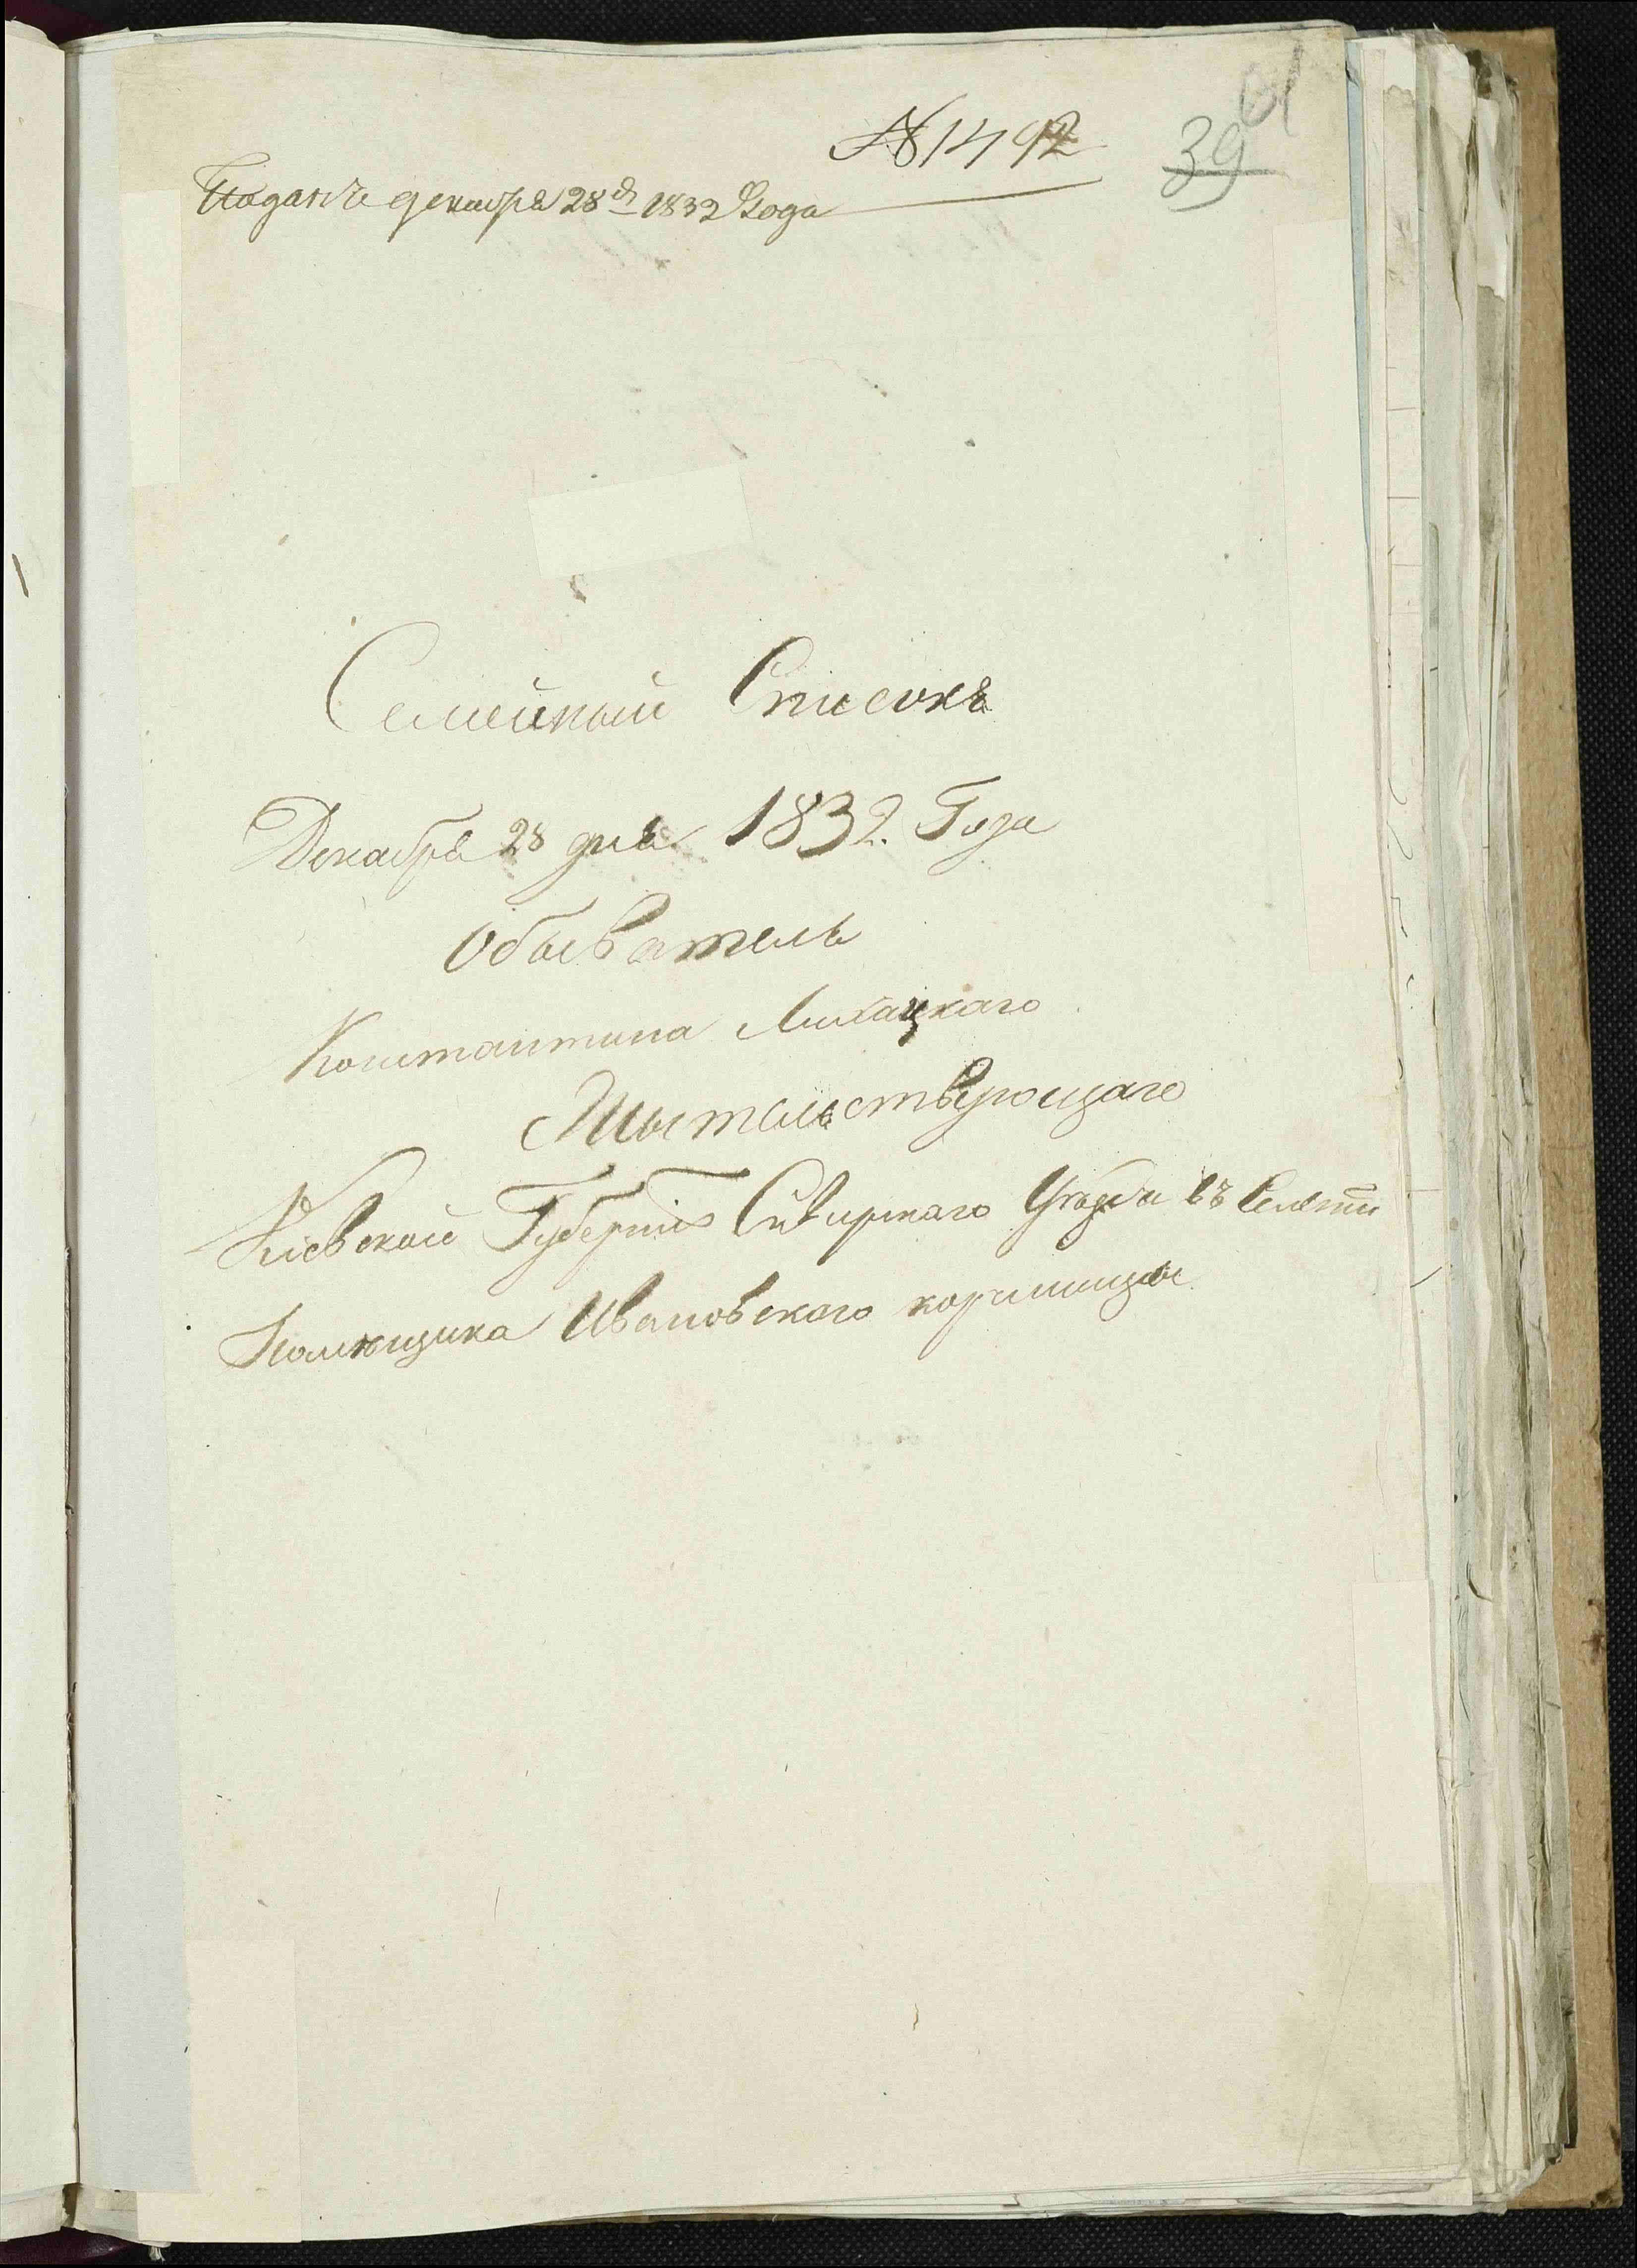 61
№ 1492
39
Поданъ декабря 28 д 1832 Года
Семейный Списокъ
Декабря 28 дня 1832. Года
Обыватель
Константина
Жытельствующаго
Кіевской Губерніи Сквирскаго Уѣзда въ
Помѣщика Ивановскаго